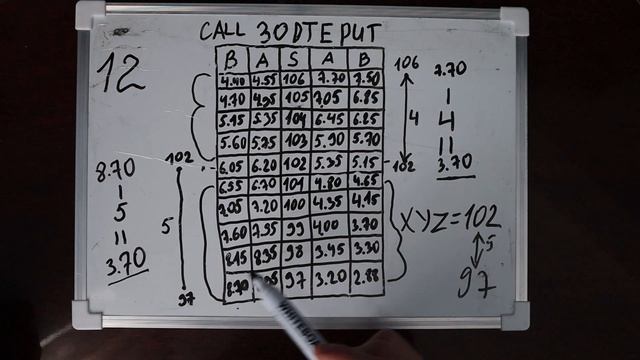 CALL 30DTE PUT
12
B A S A B
4.40 4.55 106 7.70 7.50
4.70 4.95 105 7.05 6.85
5.15 5.35 104 6.45 6.25
5.60 5.75 103 5.90 5.70
6.05 6.20 102 5.35 5.15
6.55 6.70 101 4.80 4.65
7.05 7.20 100 4.35 4.15
7.60 7.95 99 4.00 3.70
8.15 8.35 98 3.45 3.30
8.70 97 3.20 2.88
8.70
-
5
=
3.70
102
5
97
106
4
102
7.70
-
4
=
3.70
XYZ=102
5
97